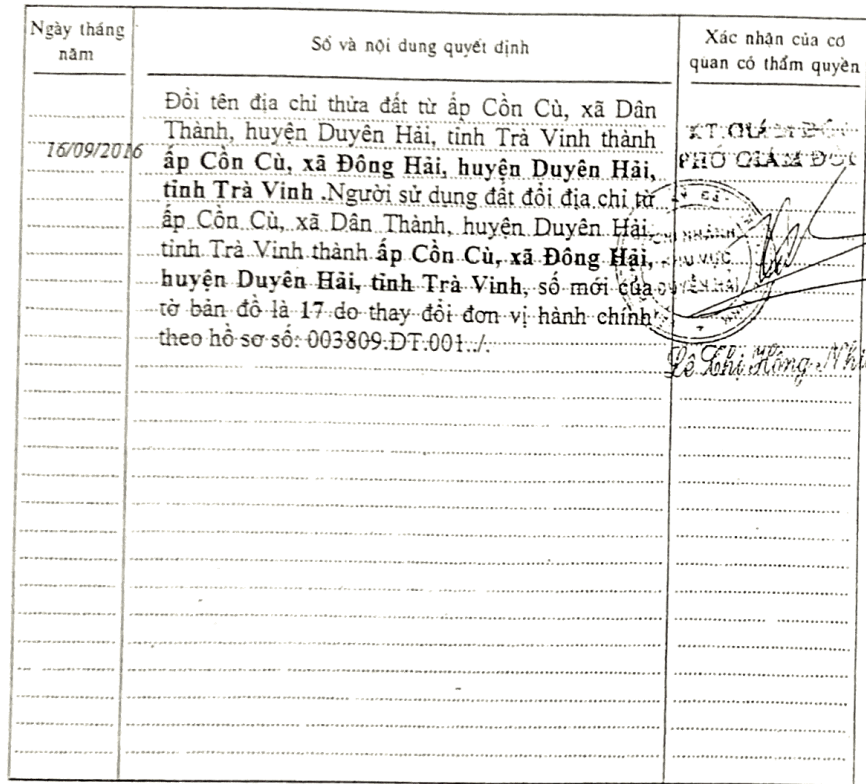 Ngày tháng
năm
Số và nội dung quyết định
Xác nhận của cơ
quan có thẩm quyền
16/09/2016
Đổi tên địa chỉ thửa đất từ ấp Cồn Cù, xã Dân
Thành, huyện Duyên Hải, tỉnh Trà Vinh thành
ấp Cồn Cù, xã Đông Hải, huyện Duyên Hải,
tỉnh Trà Vinh .Người sử dụng đất đổi địa chỉ từ
ấp Cồn Cù, xã Dân Thành, huyện Duyên Hải,
tỉnh Trà Vinh thành ấp Cồn Cù, xã Đông Hải,
huyện Duyên Hải, tỉnh Trà Vinh, số mới của
tờ bản đồ là 17 do thay đổi đơn vị hành chính
theo hồ sơ số: 003809.DT.001../.
KT.GIÁM ĐỐC
PHÓ GIÁM ĐỐC
CHI NHÁNH
KHU VỰC
DUYÊN HẢI
Lê Thị Hồng